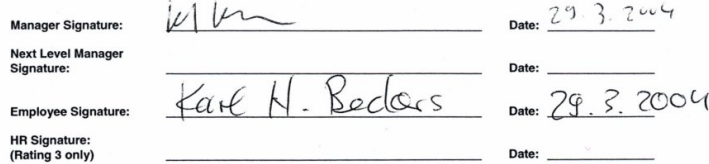 Manager Signature: Date: 29. 3. 2004
Next Level Manager
Signature: Date:
Employee Signature: Karl H. Beckers Date: 29. 3. 2004
HR Signature:
(Rating 3 only) Date: